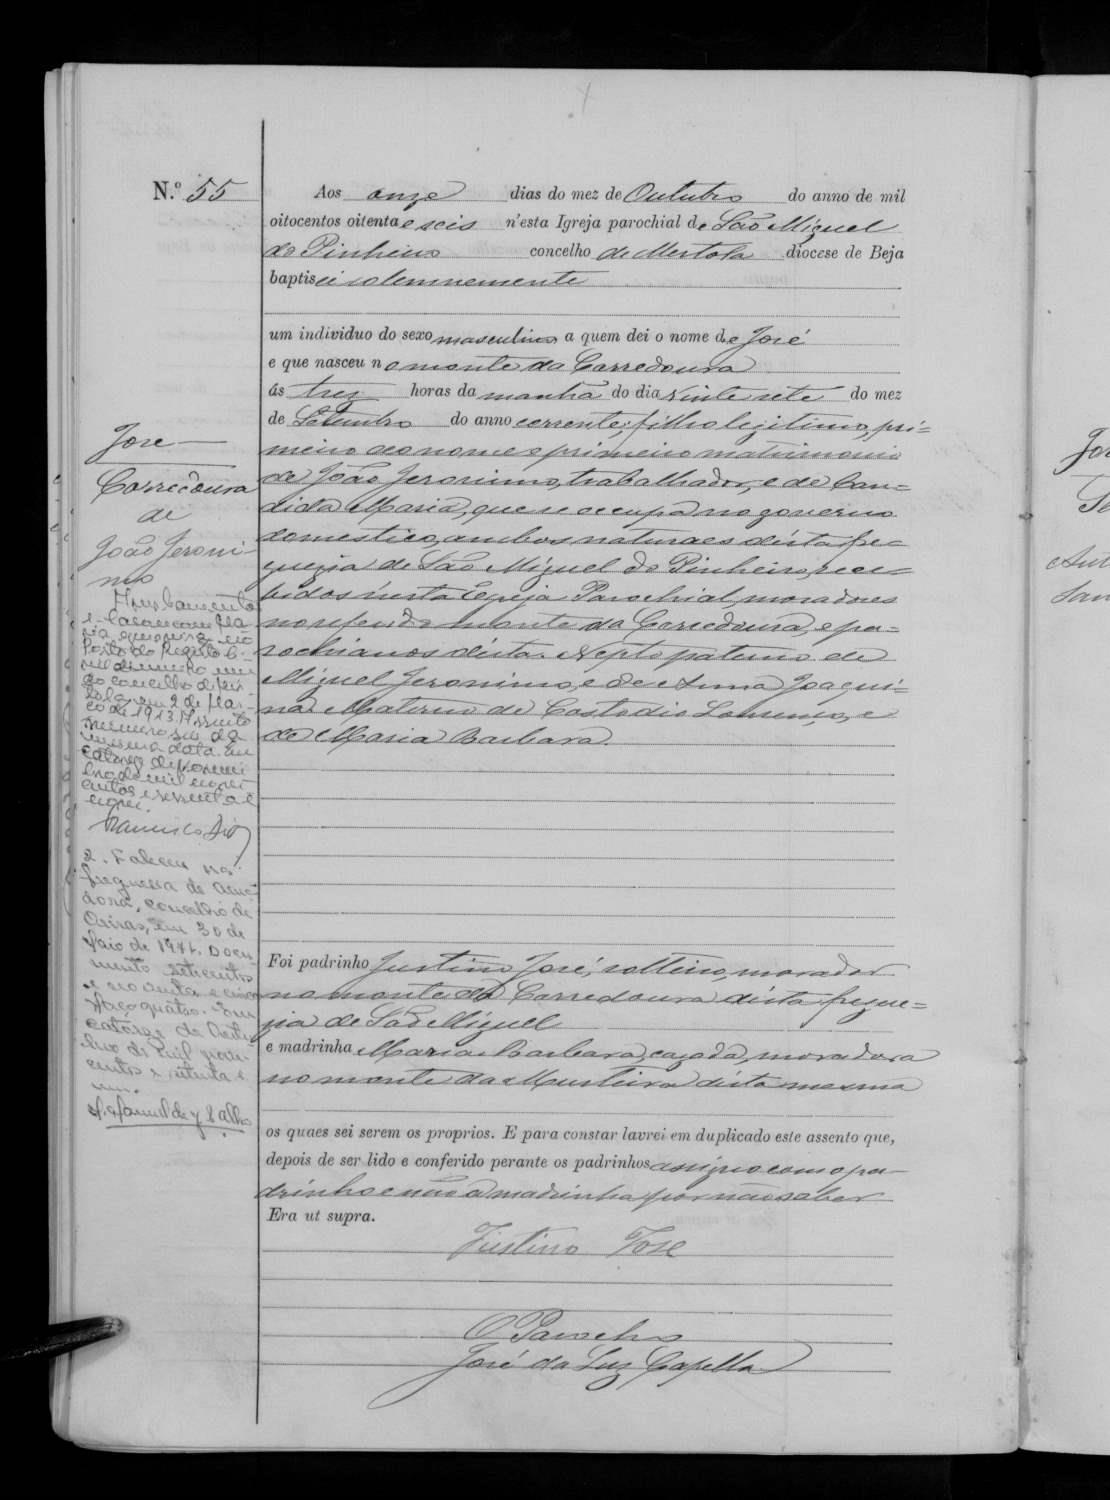 N.º 55
Aos onze dias do mez de Outubro do anno de mil
oitocentos oitenta e seis n'esta Igreja parochial de São Miguel
do Pinheiro concelho de Mertola diocese de Beja
baptisei solemnemente
um individuo do sexo masculino a quem dei o nome de José
e que nasceu no monte da Corredoura
ás trez horas da manhã do dia vinte sete do mez
de Setembro do anno corrente, filho legitimo, pri=
meiro do nome e primeiro matrimonio
de João Jeronimo, trabalhador, e de Can=
dida Maria, que se occupa no governo
domestico, ambos naturaes d'esta fre=
guezia de São Miguel do Pinheiro, rece=
bidos n'esta Egreja Parochial, moradores
no referido monte da Corredoura, e pa=
rochianos d'esta. Nepto paterno de
Miguel Jeronimo, e de Anna Joaqui=
na. Materno de Custodio Lourenço, e
de Maria Barbara.
Foi padrinho Justino José, solteiro, morador
no monte da Corredoura d'esta fregue=
zia de São Miguel
e madrinha Maria Barbara, cazada, moradora
no monte da d'esta mesma
os quaes sei serem os proprios. E para constar lavrei em duplicado este assento que,
depois de ser lido e conferido perante os padrinhos assigno com o pa-
drinho e não a madrinha por não saber
Era ut supra.
Justino Jose
O Parocho
José da Luz Capella
Jose
Corredoura
de
João Jeroni-
mo
e casou com Ma-
ria
Posto do Registo Ci-
vil
do concelho de Mér-
tola, em 2 de Mar-
ço de 1913. Assento
numero seis da
mesma data. Em
catorze de
bro de mil nove-
centos e sessenta e
nove.
2. Faleceu na
freguesia de Ama-
dora, concelho de
Oeiras, em 30 de
Maio de 1971. Docu-
mento setecentos
e noventa e cinco
Maço quatro. Em
catorze de Outu-
bro de mil nove-
centos e setenta e
um.